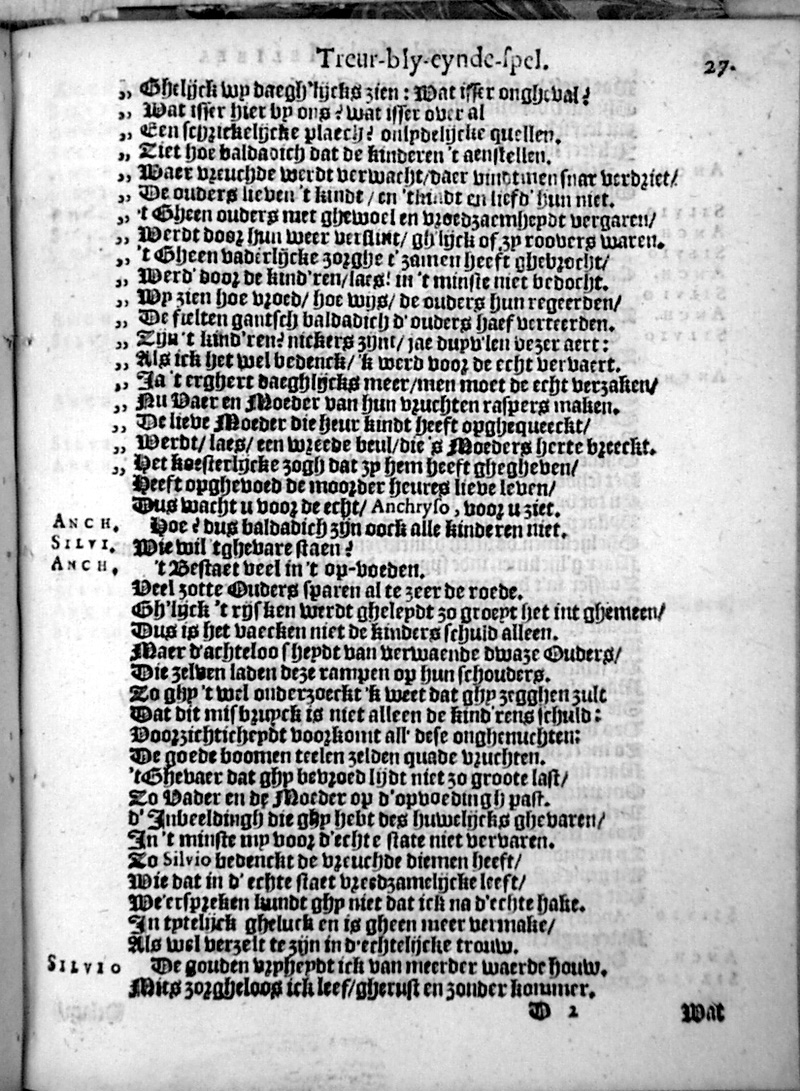 Treur-bly-eynde-spel. 27.
„ Ghelijck wy daegh'lijcks zien: Wat isser ongheval?
„ Wat isser hier by ons? wat isser over al
„ Een schrickelijcke plaech? onlydelijcke quellen.
„ Ziet hoe baldadich dat de kinderen 't aenstellen.
„ Waer vreuchde werdt verwacht/daer vindtmen snar verdriet/
„ De ouders lieven 't kindt / en 'tkindt en liefd' hun niet.
„ 't Gheen ouders met ghewoel en vroedzaemheydt vergaren/
„ Werdt door hun weer verslint/ gh'lijck of zy roovers waren.
„ 't Gheen vaderlijcke zorghe t' zamen heeft ghebrocht/
„ Werd' door de kind'ren/laes! in 't minste niet bedocht.
„ Wy zien hoe vroed/ hoe wijs/ de ouders hun regeerden/
„ De fielten gantsch baldadich d' ouders haef verteerden.
„ Zijn 't kind'ren? nickers zijnt/ jae duyv'len vezer aert:
„ Als ick het wel bedenck/ 'k werd voor de echt vervaert.
„ Ja 't erghert daeghlijcks meer/men moet de echt verzaken/
„ Nu Vaer en Moeder van hun vruchten raspers maken.
„ De lieve Moeder die heur kindt heeft opghequeeckt/
„ Werdt/ laes/ een wreede beul/die 's Moeders herte breeckt.
„ Het koesterlijcke zogh dat zy hem heeft ghegheven/
Heeft opghevoed de moorder heures lieve leven/
Dus wacht u voor de echt/ Anchryso, voor u ziet.
ANCH. Hoe? dus baldadich zijn oock alle kinderen niet.
SILVI. Wie wil 'tghevare staen?
ANCH. 't Bestaet veel in 't op-voeden.
Veel zotte Ouders sparen al te zeer de roede.
Gh'lijck 't rijsken werdt ghelepdt zo groept het int ghemeen/
Dus is het vaecken niet de kinders schuld alleen.
Maer d'achteloosheydt van verwaende dwaze Ouders/
Die zelven laden deze rampen op hun schouders.
Zo ghy 't wel onderzoeckt 'k weet dat ghy zegghen zult
Dat dit misbruyck is niet alleen de kind'rens schuld:
Voorzichticheydt voorkomt all' dese onghenuchten:
De goede boomen teelen zelden quade vruchten.
'tGhevaer dat ghy bevroed lijdt niet zo groote last/
Zo Vader en de Moeder op d'opvoedingh past.
d' Inbeeldingh die ghy hebt des huwelijcks ghevaren/
In 't minste my voor d'echte state niet vervaren.
Zo Silvio bedenckt de vreuchde diemen heeft/
Wie dat in d' echte staet vreedzamelijcke leeft/
We'erspreken kundt ghy niet dat ick na d'echte hake.
In tytelijck gheluck en is gheen meer vermake/
Als wel verzelt te zijn in d'echtelijcke trouw.
SILVIO De gouden vryheydt ick van meerder waerde houw.
Mits zorgheloos ick leef/gherust en zonder kommer.
D 2 Wat